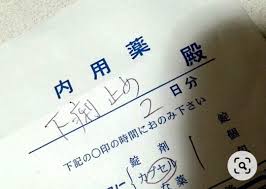 内用薬 殿
下痢止め
2 日分
下記の〇印の時間におのみ下さい
錠剤 1 錠
カプセル 個
な薬